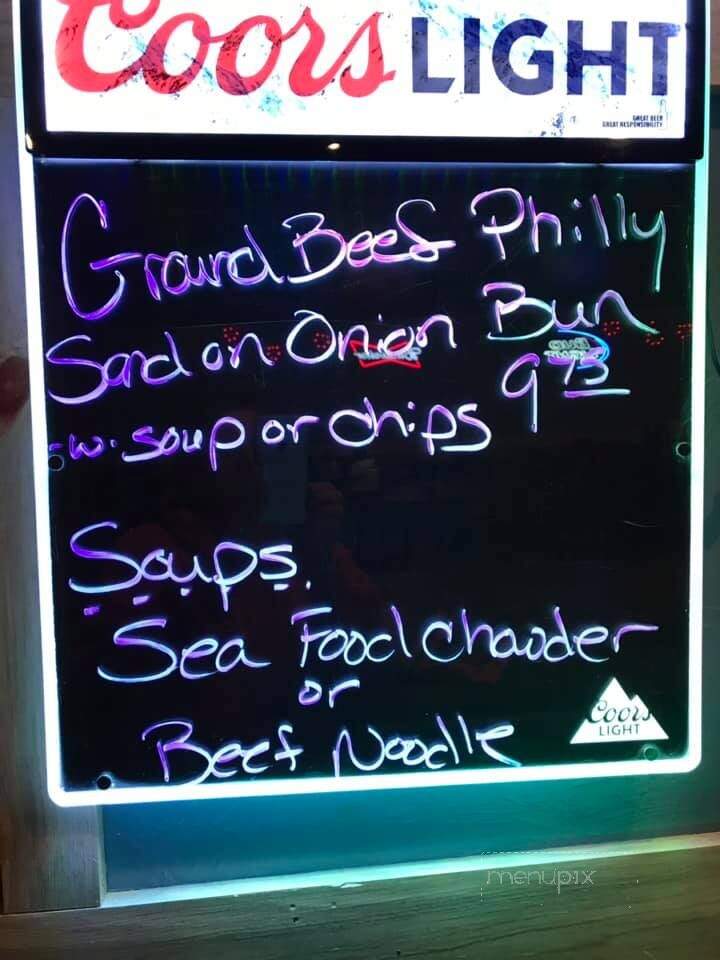 Coors LIGHT
GREAT BEER
GREAT RESPONSIBILITY
Ground Beef Philly
Sand on Onion Bun
9 75
-w. soup or chips
Soups.
Sea Food chowder
or
Beef Noodle
Coors
LIGHT
menupix